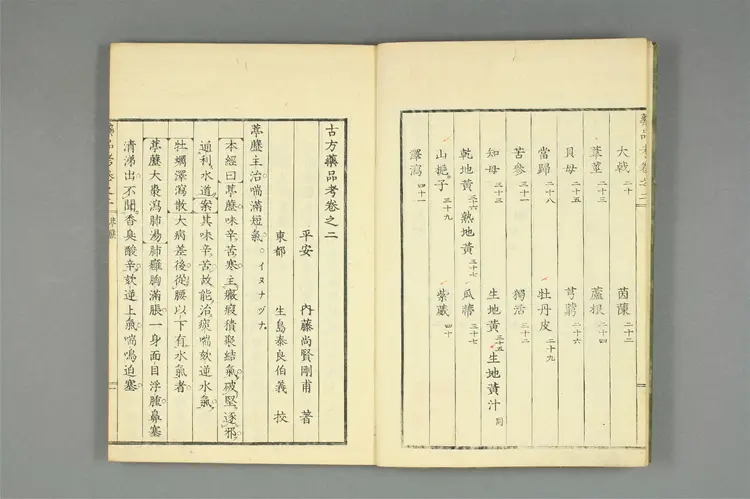 藥品考卷之二
大戟 二十 茵蔯 二十二
葉菫 二十三 蘆根 二十四
貝母 二十五 芎藭 二十六
當歸 二十八 牡丹皮 二十九
苦參 三十一 獨活 三十二
知母 三十三 生地黃 三十五 生地黃汁 同
乾地黃 三十六 熟地黃 三十七 瓜蔕 三十七
山梔子 三十九 紫葳 四十
澤瀉 四十一
古方藥品考卷之二
平安 內藤尚賢剛甫 著
東都 生島泰良伯義 校
葶藶主治喘滿短氣。イヌナヅナ
本經曰葶藶味辛苦寒主癥瘕積聚結氣破堅逐邪
通利水道案其味辛苦故能治痰喘欬逆水氣
牡蠣澤瀉散大病差後從腰以下有水氣者
葶藶大棗瀉肺湯肺癰胸滿脹一身面目浮腫鼻塞
清涕出不聞香臭酸辛欬逆上氣喘鳴迫塞
藥品考卷之二 葶藶